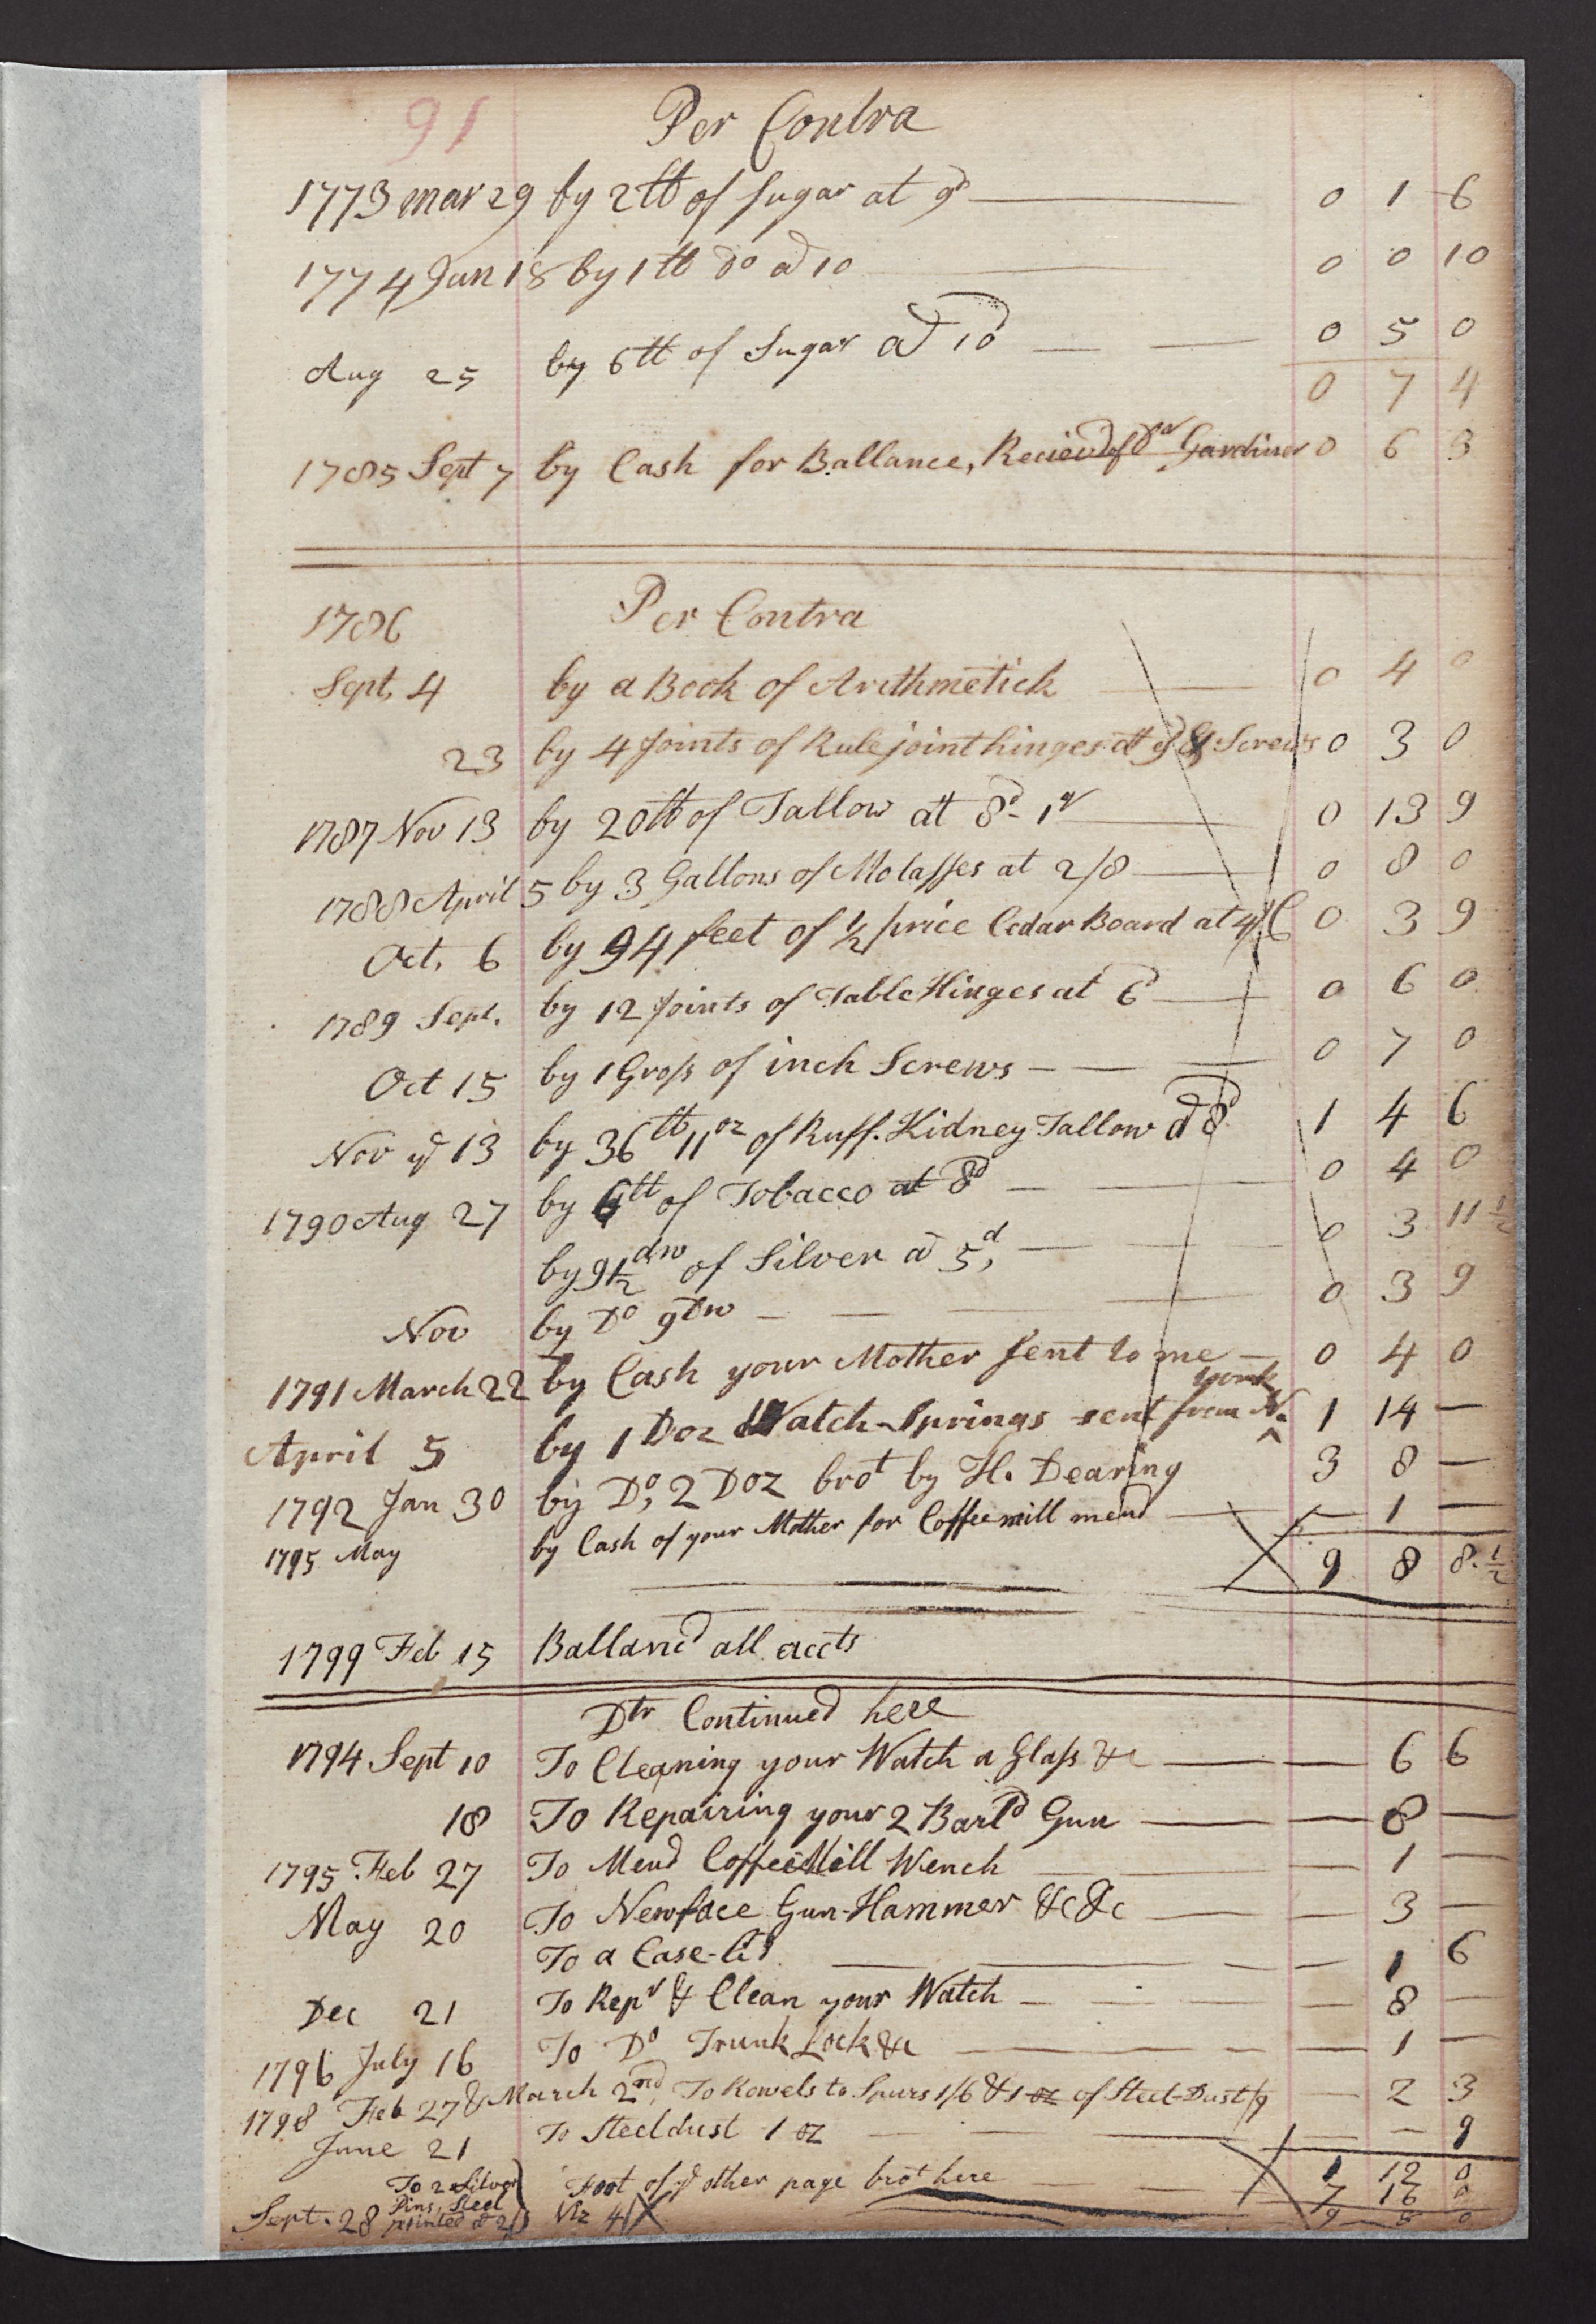 91 Per Contra
1773 mar 29 by 2 lb of Sugar at 9d 0 1 6
1774 Jan 18 by 1 lb do ad 10 0 0 10
Aug 25 by 6 lb of Sugar ad 10d 0 5 0
0 7 4
1785 Sept 7 by Cash for Ballance, Recieved of Dr Gardiner 0 6 3
1786 Per Contra
Sept, 4 by a Book of Arithmetick 0 4 0
23 by 4 Joints of Rule joint hinges at 9d & Screws 0 3 0
1787 Nov 13 by 20 lb of Tallow at 8d - 1qr 0 13 9
1788 April 5 by 3 Gallons of Molasses at 2/8 0 8 0
Oct, 6 by 94 feet of 1/2 price Cedar Board at 4/ C 0 3 9
1789 Sept. by 12 Joints of Table Hinges at 6d 0 6 0
Oct 15 by 1 Gross of inch Screws 0 7 0
Nov ye 13 by 36 lb 11 oz of Ruff. Kidney Tallow ad 8d 1 4 6
1790 Aug 27 by 6 lb of Tobacco at 8d 0 4 0
by 9 1/2 dw of Silver ad 5d, 0 3 11 1/2
Nov by Do 9 dw 0 3 9
1791 March 22 by Cash your Mother sent to me 0 4 0
April 5 by 1 Doz Watch-Springs sent from N. york 1 14 —
1792 Jan 30 by Do, 2 Doz brot by H. Dearing 3 8 —
1795 May by Cash of your Mother for Coffee mill mend — 1 —
9 8 8. 1/2
1799 Feb 15 Balland all accts
Dtr Continued here
1794 Sept 10 To Cleaning your Watch a Glass &c — 6 6
18 To Repairing your 2 Barld Gun — 8 —
1795 Feb 27 To Mend Coffee Mill Wench — 1 —
May 20 To New face Gun-Hammer &c &c — 3 —
To a Case — 1 6
Dec 21 To Repr & Clean your Watch — 8 —
1796 July 16 To Do Trunk Lock &c — 1 —
1798 Feb 27 & March 2nd, To Rowels to Spurs 1/6 & 1 oz of Steel-Dust /9 — 2 3
June 21 To Steel dust 1 oz — — 9
Foot of ye other page brot here 1 12 0
Sept. 28 To 2 Silver Pins, Steel pointed at 2/ Viz 4/ 7 16 0
9 8 0